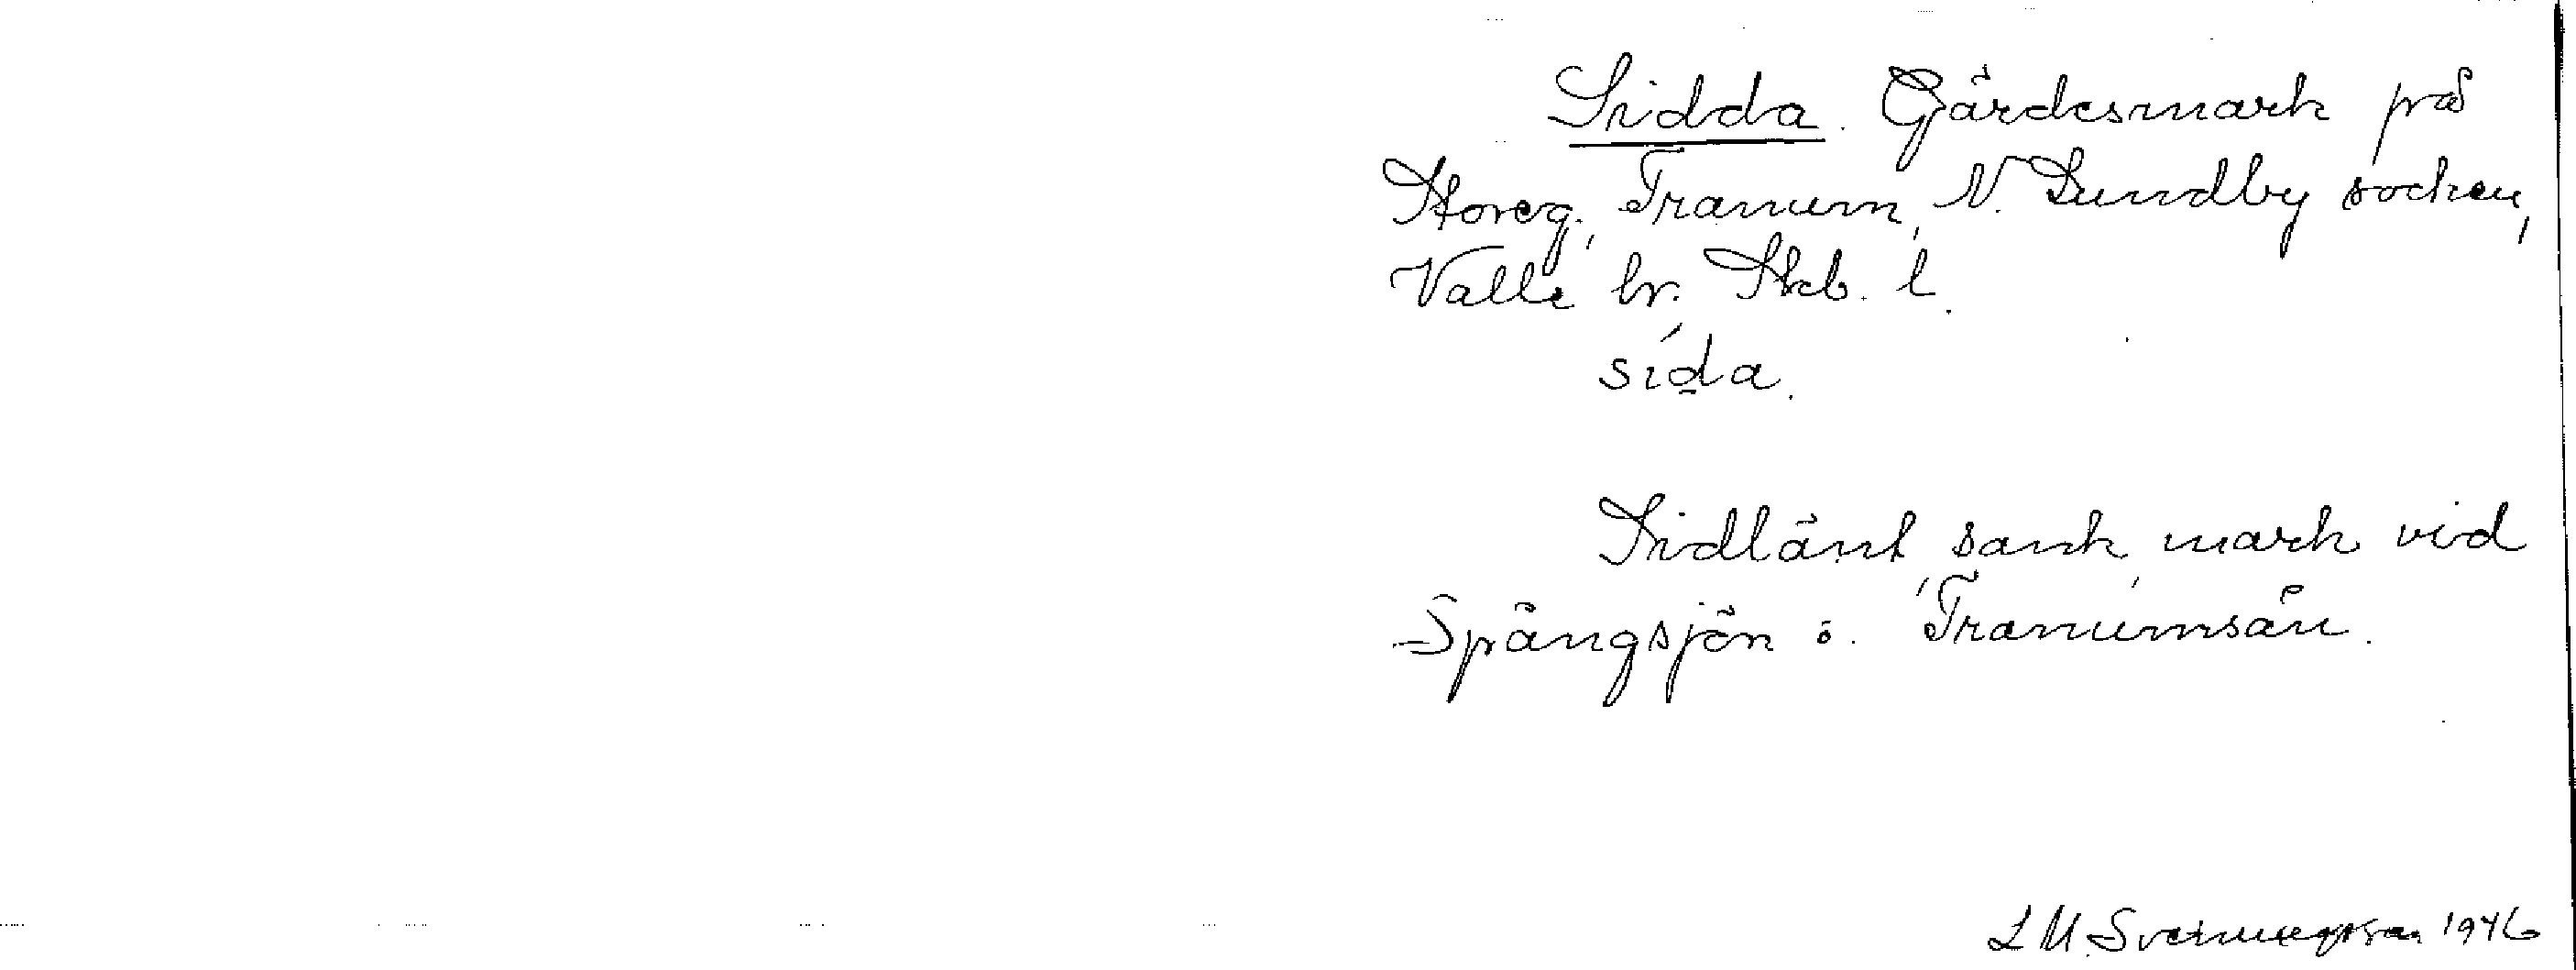 Sidda. Gärdesmark på
Storeg., Tranum, N. Lundby socken,
Valle hr. Skb. l.
sída.
Sidlänt, sank, mark vid
Spångsjön o. Tranumsån.
L M. Sveningsson 1946